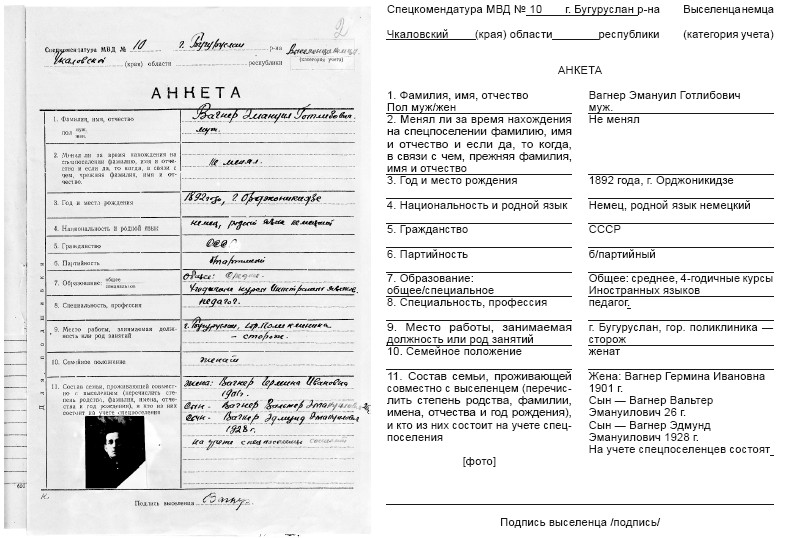 2
Спецкомендатура МВД № 10 г. Бугуруслан р-на Выселенцанемца
Чкаловской (края) области республики (категория учета)
АНКЕТА
1. Фамилия, имя, отчество Вагнер Эмануил Готлибович
пол муж. жен. муж.
2. Менял ли за время нахождения на
спецпоселении фамилию, имя и отче-
ство и если да, то когда, в связи с
чем, прежняя фамилия, имя и от-
чество.
Не менял.
3. Год и место рождения 1892 года, г. Орджоникидзе
4. Национальность и родной язык немец, родной язык немецкий
5. Гражданство СССР
6. Партийность б/партийный
7. Образование: общее специальное Общее: Среднее.
4годичные курсы Иностранных языков.
8. Специальность, профессия педагог.
9. Место работы, занимаемая долж-
ность или род занятий
г. Бугуруслан, гор. Поликлиника
— сторож.
10. Семейное положение женат
11. Состав семьи, проживающей совмест-
но с выселенцем (перечислить сте-
пень родства, фамилии, имена, отче-
ства и год рождения), и кто из них
состоит на учете спецпоселения
жена: Вагнер Гермина Ивановна
1901 г.
Сын — Вагнер Вальтер Эмануилович
Сын — Вагнер Эдмунд Эмануилович
1928 г.
на учете спецпоселенцев
Для подшивки
Подпись выселенца Вагнер
Спецкомендатура МВД № 10 г. Бугуруслан р-на Выселенцанемца
Чкаловский (края) области республики (категория учета)
АНКЕТА
1. Фамилия, имя, отчество Вагнер Эмануил Готлибович
Пол муж/жен муж.
2. Менял ли за время нахождения Не менял
на спецпоселении фамилию, имя
и отчество и если да, то когда,
в связи с чем, прежняя фамилия,
имя и отчество
3. Год и место рождения 1892 года, г. Орджоникидзе
4. Национальность и родной язык Немец, родной язык немецкий
5. Гражданство СССР
6. Партийность б/партийный
7. Образование: Общее: среднее, 4-годичные курсы
общее/специальное Иностранных языков
8. Специальность, профессия педагог.
9. Место работы, занимаемая г. Бугуруслан, гор. поликлиника —
должность или род занятий сторож
10. Семейное положение женат
11. Состав семьи, проживающей Жена: Вагнер Гермина Ивановна
совместно с выселенцем (перечис- 1901 г.
лить степень родства, фамилии, Сын — Вагнер Вальтер
имена, отчества и год рождения), Эмануилович 26 г.
и кто из них состоит на учете спец- Сын — Вагнер Эдмунд
поселения Эмануилович 1928 г.
На учете спецпоселенцев состоят
[фото]
Подпись выселенца /подпись/